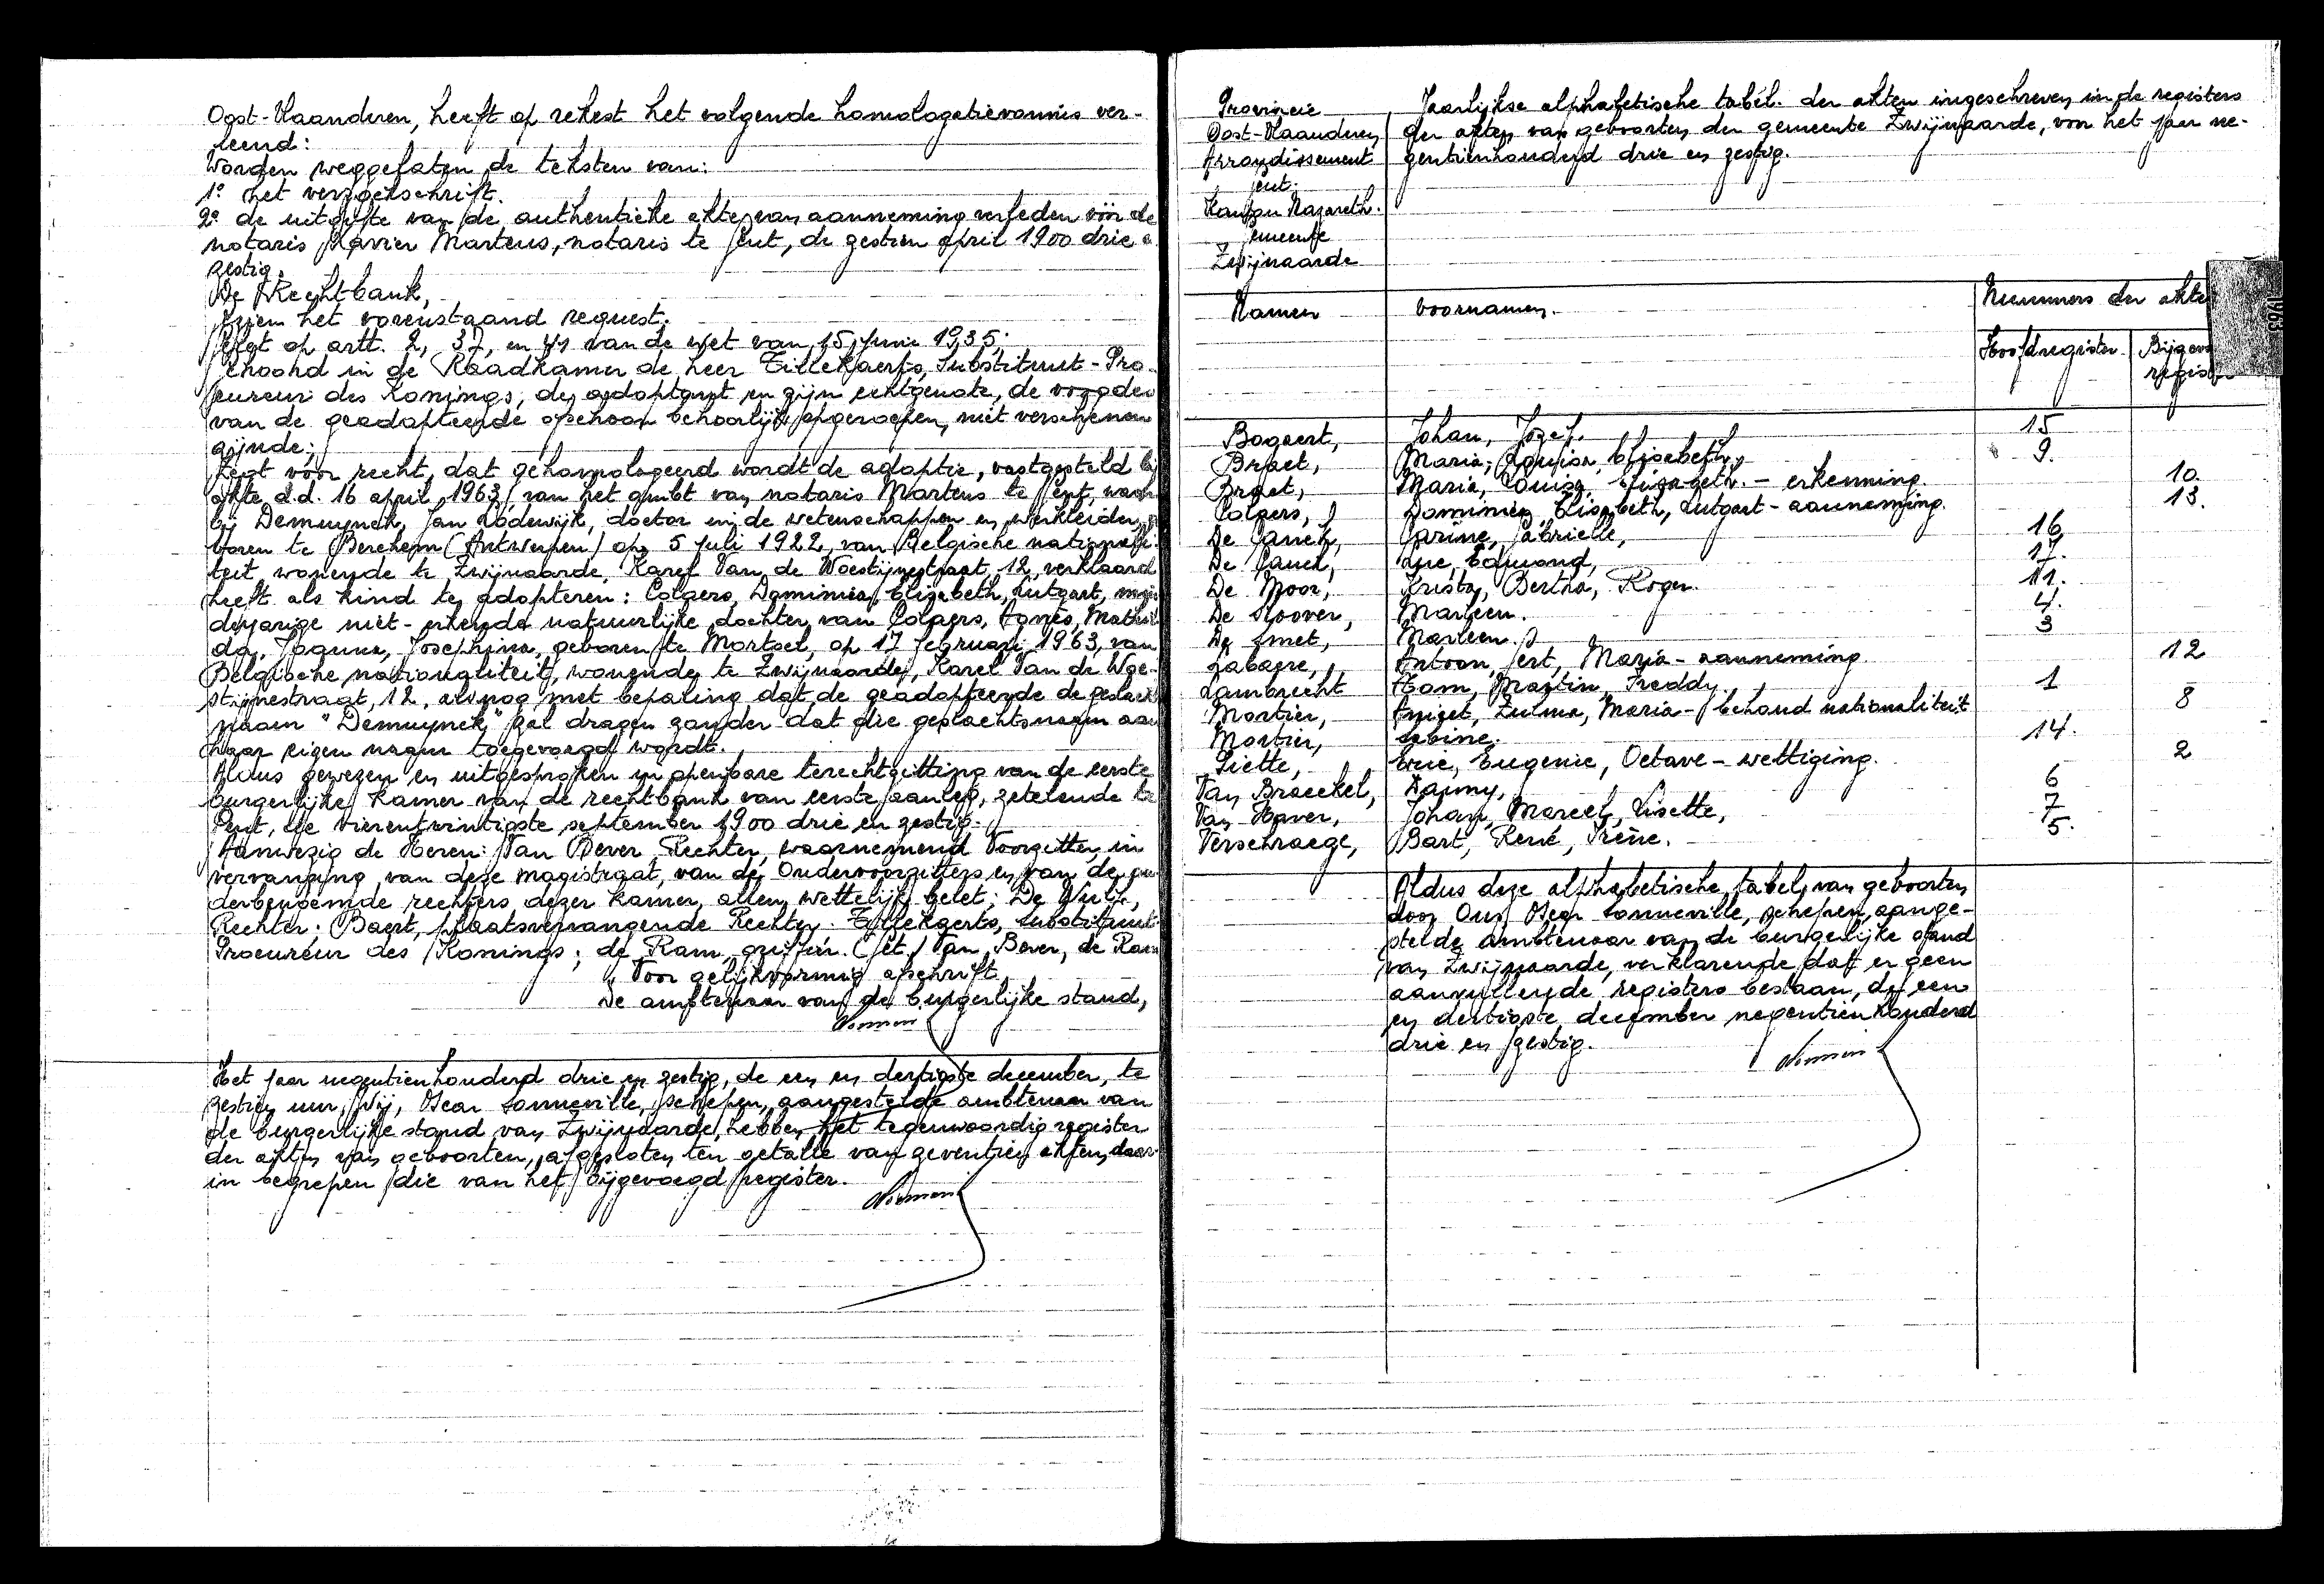 Oost-Vlaanderen, heeft op rekest het volgende homologatievonnis ver-
leend:
Worden weggelaten de teksten van:
1° het verzoekschrift.
2° de uitgifte van de authentieke akte van aanneming verleden vóór de
notaris Xavier Martens, notaris te Gent, de zestien april 1900 drie e
zestig.
De Rechtbank,
Gezien het vorenstaand request.
Gelet op artt. 2, 37, en 41 van de wet van 15 Junie 1935;
Gehoord in de Raadkamer de heer Tillekaerts, Substituut-Pro-
cureur des Konings, de adoptant en zijn echtgenote, de voogden
van de geadopteerde ofschoon behoorlijk opgeroepen, niet verschenen
zijnde;
Zegt vóór recht, dat gehomologeerd wordt de adoptie, vastgesteld bij
akte d.d. 16 april 1963, van het ambt van notaris Martens te Gent, waar
bij Demuynck, Jan Lodewijk, doctor in de wetenschappen en werkleider, g
boren te Berchem (Antwerpen) op 5 juli 1922, van Belgische nationali-
teit wonende te Zwijnaarde, Karel Van de Woestijnestraat, 12, verklaard
heeft als kind te adopteren: Colpaers, Dominica, Elisabeth, Lutgart, min
derjarige niet-erkende natuurlijke dochter van Colpaers, Agnès, Mathil
da, Joanna, Josephina, geboren te Mortsel, op 17 februari 1963, van
Belgische nationaliteit, wonende te Zwijnaarde, Karel Van de Woe-
stijnestraat, 12, alsnog met bepaling dat de geadopteerde de geslacht
naam "Demuynck" zal dragen zonder dat die geslachtsnaam aan
haar eigen naam toegevoegd wordt.
Aldus gewezen en uitgesproken in openbare terechtzitting van de eerste
burgerlijke kamer van de rechtbank van eerste aanleg, zetelende te
Gent, de vierentwintigste september 1900 drie en zestig.
Aanwezig de Heren: Van Bever, Rechter, waarnemend Voorzitter, in
vervanging van deze magistraat, van de Ondervoorzitters en van de
derbenoemde rechters dezer kamer, allen wettelijk belet; De Wulf,
Rechter. Baert, plaatsvervangende Rechter. Tillekaerts, Substituut-
Procureur des Konings; de Ram, griffier. (Get.) Van Bever, de Ram
Voor gelijkvormig afschrift,
De ambtenaar van de burgerlijke stand,
Het jaar negentienhonderd drie en zestig, de een en dertigste december, te
zestien uur, Wij, Oscar Sonneville, schepen, aangestelde ambtenaar van
de burgerlijke stand van Zwijnaarde, hebben het tegenwoordig register
der akten van geboorten, afgesloten ten getalle van zeventien akten, daar
in begrepen die van het bijgevoegd register.
Provincie
Oost-Vlaanderen
Arrondissement
Gent.
Kanton Nazareth.
Gemeente
Zwijnaarde
Jaarlijkse alphabetische tabel. der akten ingeschreven in de registers
der akten van geboorten der gemeente Zwijnaarde, voor het jaar ne-
gentienhonderd drie en zestig.
1963
Namen Voornamen. Nummers der akte
Hoofdregister. Bijgev
regis
Bogaert, Johan, Jozef. 15
Braet, Maria, Louisa, Elisabeth, 9.
Braet, Maria, Louisa, Elisabeth. - erkenning. 10.
Colpaers, Dominica, Elisabeth, Lutgart - aanneming. 13.
De Canck, Carine, Gabrielle, 16
De Canck, Luc, Edmond, 17.
De Moor, Krista, Bertha, Roger. 11.
De Stoover, Marleen. 4.
De Smet, Marleen. 3
Labaere, Antoon, Gert, Maria - aanneming. 12
Lambrecht Tom, Martin, Freddy. 1
Mortier, Zulma, Maria - behoud nationaliteit 8
Mortier, Sabine. 14.
Piette, Eric, Eugenie, Octave - wettiging. 2
Van Braeckel, Danny, 6
Van Haver, Johan, Marcel, Lisette, 7
Verschraege, Bart, René, Irène. 5.
Aldus deze alphabetische tabel van geboorten
door Ons, Oscar Sonneville, schepen, aange-
stelde ambtenaar van de burgerlijke stand
van Zwijnaarde, verklarende dat er geen
aanvullende registers bestaan, de een
en dertigste december negentienhonderd
drie en zestig.